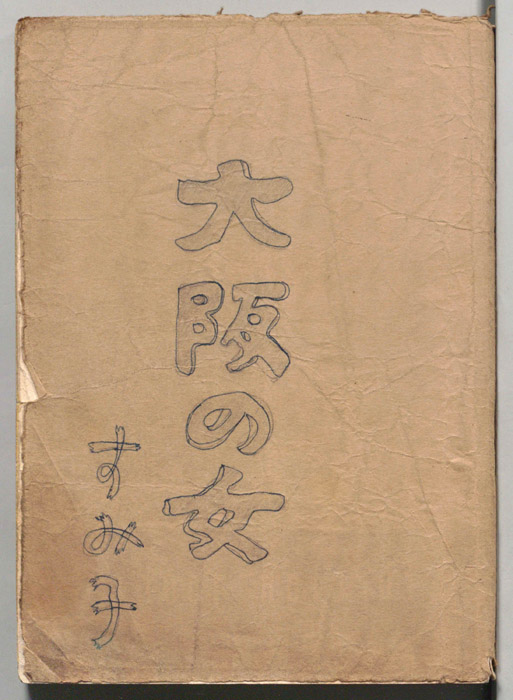 大阪の女
すみ子